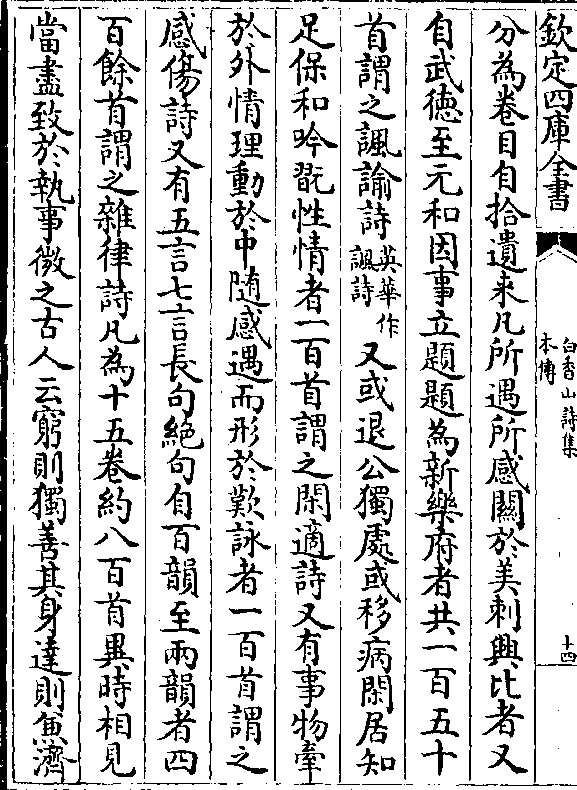 欽定四庫全書
白香山詩集
本傳
十四
分為卷目自拾遺来凡所遇所感關於美刺興比者又
自武徳至元和因事立題題為新樂府者共一百五十
首謂之諷諭詩英華作諷詩又或退公獨處或移病閑居知
足保和吟翫性情者一百首謂之閑適詩又有事物牽
於外情理動於中随感遇而形於歎詠者一百首謂之
感傷詩又有五言七言長句絶句自百韻至兩韻者四
百餘首謂之雜律詩凡為十五卷約八百首異時相見
當盡致於執事㣲之古人云窮則獨善其身達則兼濟